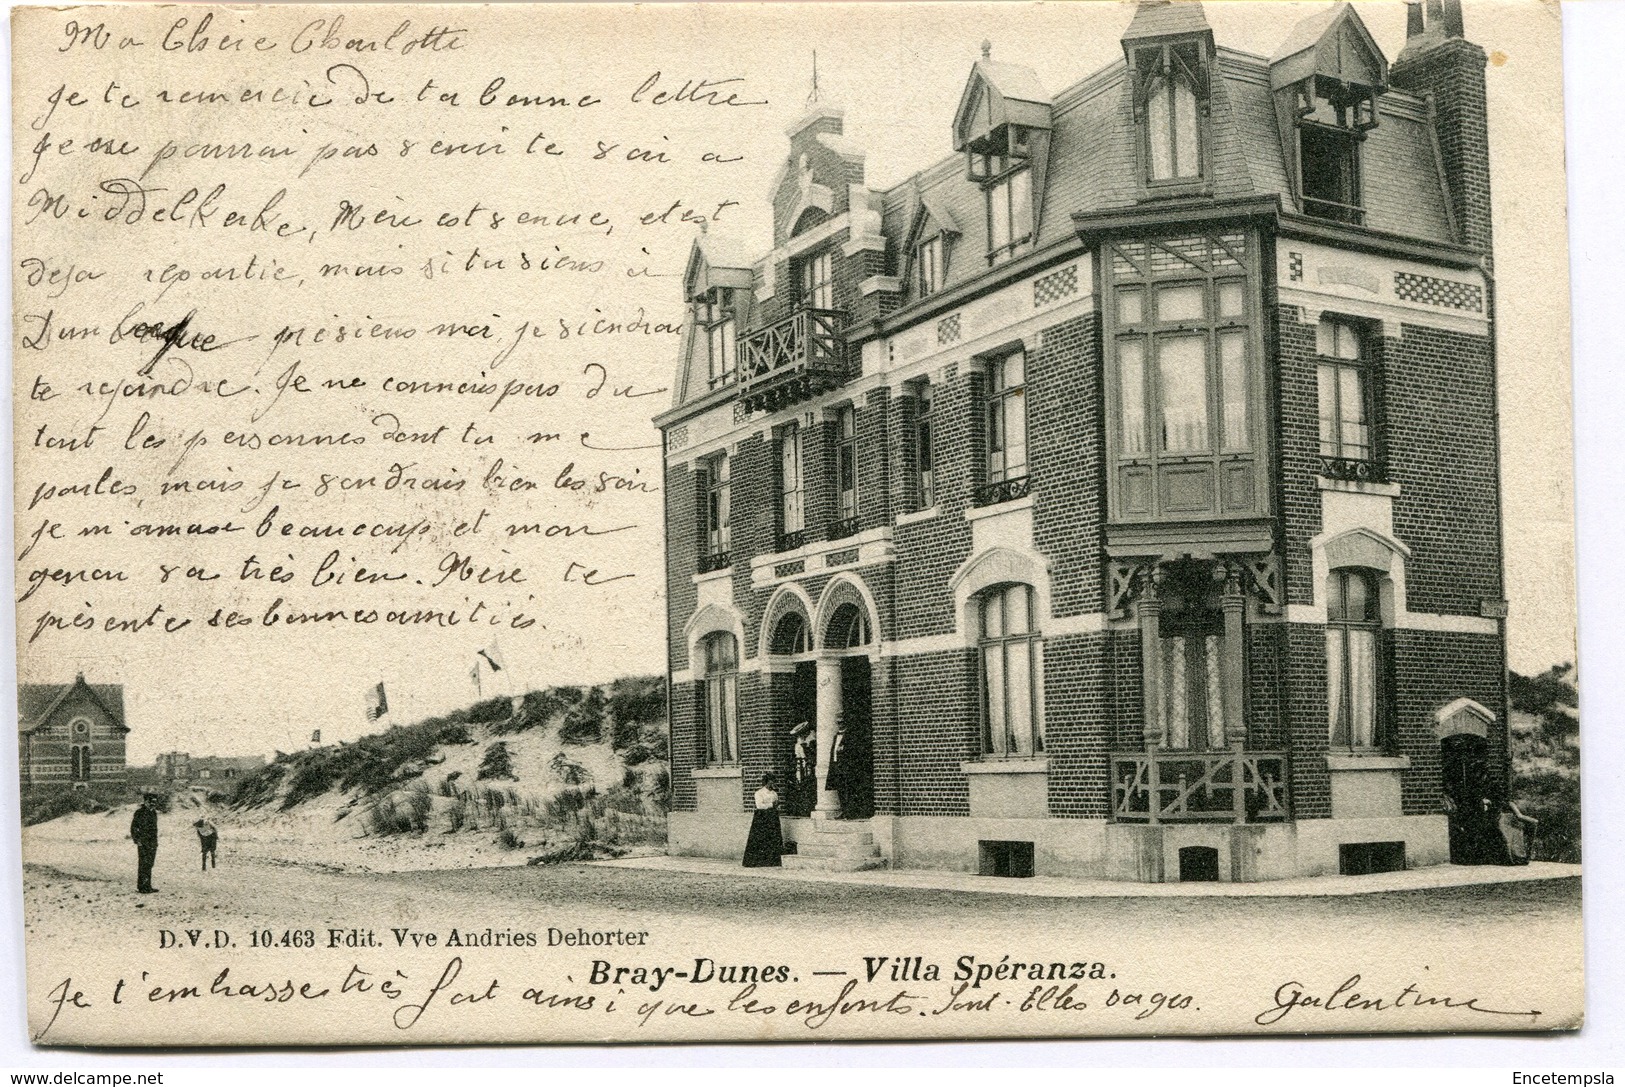 Ma Chère Charlotte
Je te remercie de ta bonne lettre
Je ne pourrai pas venir te voir a
Middelkerke, Mère est venue, et est
deja repartie, mais si tu viens à
Dunkerque préviens moi, je viendrai
te rejoindre. Je ne connais pas du
tout les personnes dont tu me
parles, mais je voudrais bien les voir
je m'amuse beaucoup et mon
genou va très bien. Mère te
présente ses bonnes amitiés.
D.V.D. 10.463 Edit. Vve Andries Dehorter
Bray-Dunes. — Villa Spéranza.
Je t'embrasse très fort ainsi que les enfants. Sont-Elles sages. Valentine
Encetempsla